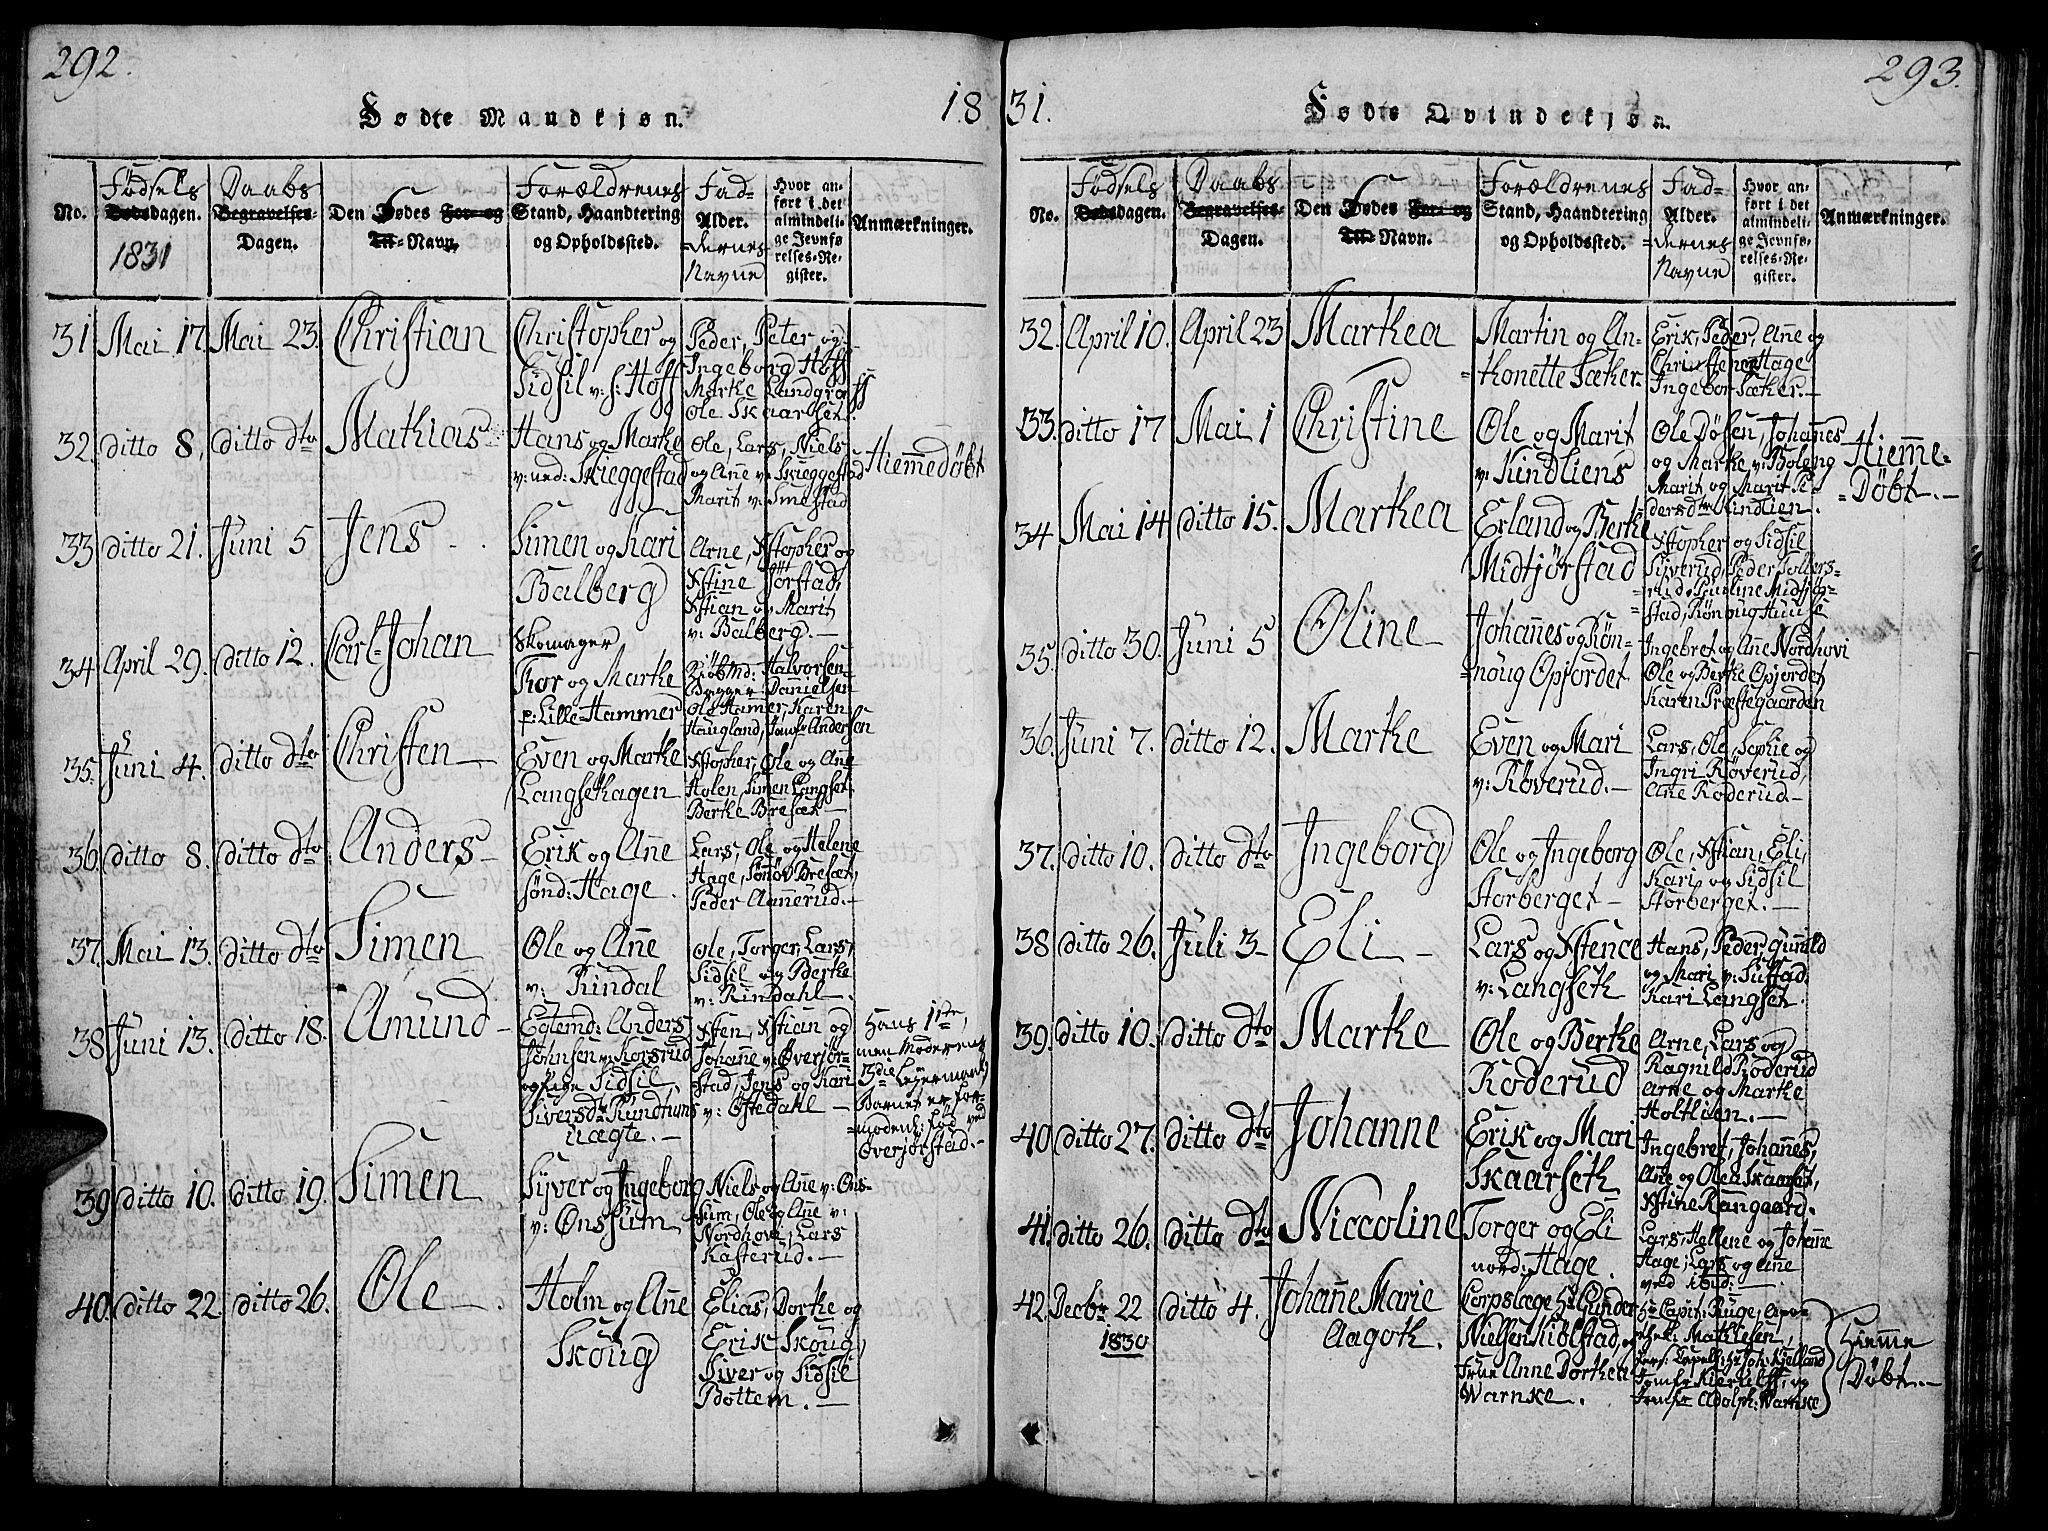 292.
Fødte Mandkjøn.
18
No.
Fødsels
Dødsdagen.
1831
Daabs
Begravelses-
Dagen.
Den Fødes For- og
Til-Navn.
Forældrenes
Stand, Haandtering
og Opholdssted.
Fad-
Alder.
=dernes
Navne
Hvor an-
ført i det
almindeli-
ge Jevnfø
relses-Re-
gister.
Anmærkninger.
31 Mai 17. Mai 23. Christian
Christopher og
Sidsil v: s: Hoff
Peder, Peter og
Ingeborg Hoff
Marthe Landgraff
Ole Skaarset.
32. ditto 8, ditto dto Mathias
Hans og Marthe
v: ned: Skieggestad
Ole, Lars, Niels
og Ane v: Skieggestad
Marit v: Smestad
Hiemedøbt
33 ditto 21. Juni 5 Jens
Simen og Kari
Balberg
Arne, Xstopher og
Xstine Jørstad,
Xstian og Marit
v: Balberg.
34 April 29. ditto 12. Carl Johan
Skomager
Thor og Marthe
p: Lille Hammer
Kiøbmd: Halvorsen
Brygger Danielsen
Ole Hamer, Karen
Haugland, Jomfr Andersen
35. Juni 4. ditto dto Christen
Even og Marthe
Langsethagen
Xstopher, Ole og Ane
Holen, Simen Langset,
Berthe Bresæt
36. ditto 8. ditto dto Anders
Erik og Ane
sønd: Hage.
Lars, Ole og Helene
Hage, Sønov Bresæt,
Peder Aannerud.
37. Mai 13. ditto dto Simen
Ole og Ane
v: Rindal
Ole, Torger, Lars,
Sidsil og Berthe
v: Rindahl.
38 Juni 13. ditto 18. Amund
Egtemd: Anders
Johnsen v: Korsrud
og Pige Sidsil
Siversdtr Rundtuns
uægte.
Xsten, Xstian og
Johane v: Øverjør-
stad, Jens og Kari
v: Ostedahl
Hans 1ste,
men Moderens
3die Leiermaal
Barnet er for-
modentl: fød ved
Overjørstad.
39 ditto 10. ditto 19. Simen
Syver og Ingeborg
v: Onssum
Niels og Ane v: Ons-
sum, Ole og Ane v:
Nordhove, Lars
Kasterud.
40. ditto 22. ditto 26. Ole
Holm og Ane
Skoug
Elias, Dorthe og
Erik Skoug,
Siver og Sidsil
Bottem.
31.
Fødte Qvindekjøn.
293.
No.
Fødsels
Dødsdagen.
Daabs
Begravelses-
Dagen.
Den Fødes For- og
Til-Navn.
Forældrenes
Stand, Haandtering
og Opholdssted.
Fad-
Alder.
=dernes
Navne
Hvor an-
ført i det
almindeli-
ge Jevnfø-
relses-Re-
gister.
Anmærkninger.
32. April 10. April 23 Marthea
Martin og An-
=thonette Sæther.
Erik, Peder, Ane og
Christense Hage
Ingebor Sæther.
33. ditto 17 Mai 1 Christine
Ole og Marit
v: Kindliens
Ole Døsen, Johanes
og Marthe v: Boleng
Marit og Marit Pe-
dersdtr Kindlien.
Hieme-
=Døbt.
34 Mai 14 ditto 15. Marthea
Erland og Berthe
Midtjørstad
Xstopher og Sidsil
Syverud, Peder Sollers-
=rud, Pauline Midtjør-
=stad, Rønoug Huuse
35. ditto 30. Juni 5 Oline
Johanes og Røn-
=noug Opjordet
Ingebret og Ane Nordhovi
Ole og Berthe Opjordet
Karen Præstegaarden
36. Juni 7. ditto 12. Marthe
Even og Mari
v: Røverud.
Lars, Ole, Sophie og
Ingri Røverud,
Ane Roderud.
37. ditto 10. ditto dto Ingeborg
Ole og Ingeborg
Storberget
Ole, Xstian, Eli,
Kari og Sidsil
Storberget.
38 ditto 26. Juli 3 Eli
Lars og Xstence
v: Langseth
Hans, Peder, Gunild
og Mari v: Sustad.
Kari Langset.
39. ditto 10. ditto dto Marthe
Ole og Berthe
Roderud
Arne, Lars og
Ragnild Roderud
Arne og Marthe
Holtlien.
40 ditto 27. ditto dto Johanne
Erik og Mari
Skaarseth
Ingebret, Johanes,
Ane og Olea Skaarset,
Xstine Rangaard.
41. ditto 26. ditto dto Niccoline
Torger og Eli
nord: Hage.
Lars, Hellene og Johane
Hage, Lars og Ane
ved ibid:
42. Decbr 22 ditto 4. Johane Marie
1830
Aagoth.
Corpslæge Hr Gunder
Nielsen Kiølstad, og
Frue Anne Dorthea
Warnke.
Hr Capit: Ruge, Apo-
thek: Mathiesen,
Pers: Capell: Hr Joh: Kjelland
Jomfr Kierulff, og
Jomfr Adolph: Warnke
Hieme
Døbt.